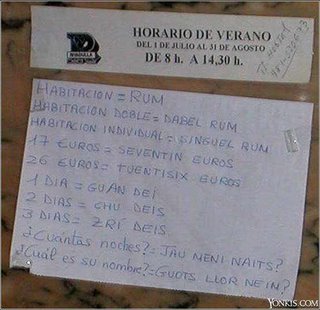 HORARIO DE VERANO
DEL 1 DE JULIO AL 31 DE AGOSTO
DE 8 h. A 14,30 h.
HABITACION = RUM
HABITACION DOBLE = DABEL RUM
HABITACION INDIVIDUAL = SINGUEL RUM
17 EUROS = SEVENTIN EUROS
26 EUROS = TUENTISIX EUROS
1 DIA = GUAN DEI
2 DIAS = CHU DEIS
3 DIAS = ZRI DEIS
¿Cuántas noches? = JAU MENI NAITS?
¿Cuál es su nombre? = GUOTS LLOR NEIM?
YONKIS.COM